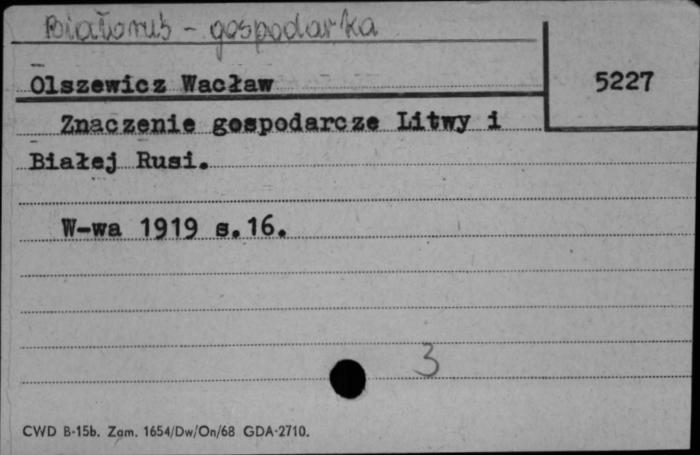 Białoruś - gospodarka
Olszewicz Wacław
5227
Znaczenie gospodarcze Litwy i
Białej Rusi.
W-wa 1919 s.16.
3
CWD B-15b. Zam. 1654/Dw/On/68 GDA-2710.